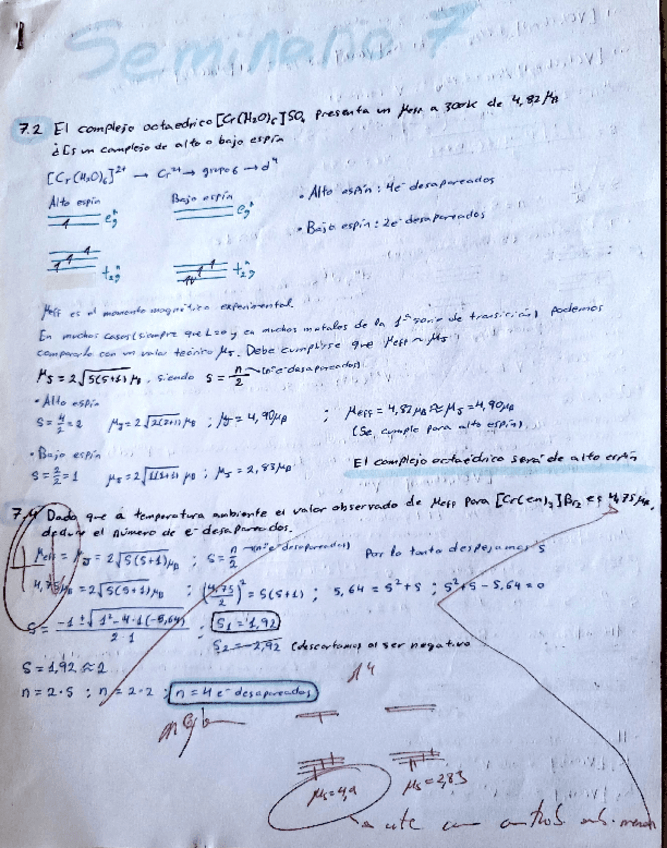 1
Seminario 7
7.2 El complejo octaedrico [Cr(H₂O)₆]SO₄ presenta un μeff a 300K de 4,82 μB
¿Es un complejo de alto o bajo espín
[Cr(H₂O)₆]²⁺ → Cr²⁺ → grupo 6 → d⁴
Alto espín Bajo espín • Alto espín: 4e⁻ desapareados
eg* eg* • Bajo espín: 2e⁻ desapareados
t₂gⁿ t₂gⁿ
μeff es el momento magnético experimental.
En muchos casos (siempre que L≈0 y en muchos metales de la 1ª serie de transición) podemos
compararlo con un valor teórico μs. Debe cumplirse que μeff ~ μs
μs = 2√S(S+1) μB, siendo S = n/2 → (nº e⁻ desapareados)
• Alto espín
S = 4/2 = 2 μs = 2√2(2+1) μB ; μs = 4,90 μB ; μeff = 4,82 μB ≈ μs = 4,90 μB
(Se cumple para alto espín)
• Bajo espín
S = 2/2 = 1 μs = 2√1(1+1) μB ; μs = 2,83 μB
El complejo octaédrico será de alto espín
7.4 Dado que a temperatura ambiente el valor observado de μeff para [Cr(en)₃]Br₂ es 4,75 μB,
deducir el número de e⁻ desapareados.
μeff = μs = 2√S(S+1) μB ; S = n/2 → (nº e⁻ desapareados) Por lo tanto despejamos S
4,75 μB = 2√S(S+1) μB ; (4,75/2)² = S(S+1) ; 5,64 = S² + S ; S² + S - 5,64 = 0
S = -1 ± √1² - 4·1(-5,64) / 2·1 ; S₁ = 1,92
S₂ = -2,92 (descartamos al ser negativo
S = 1,92 ≈ 2
n = 2·S ; n = 2·2 ; n = 4 e⁻ desapareados
d4
μs = 4,9 μs = 2,83